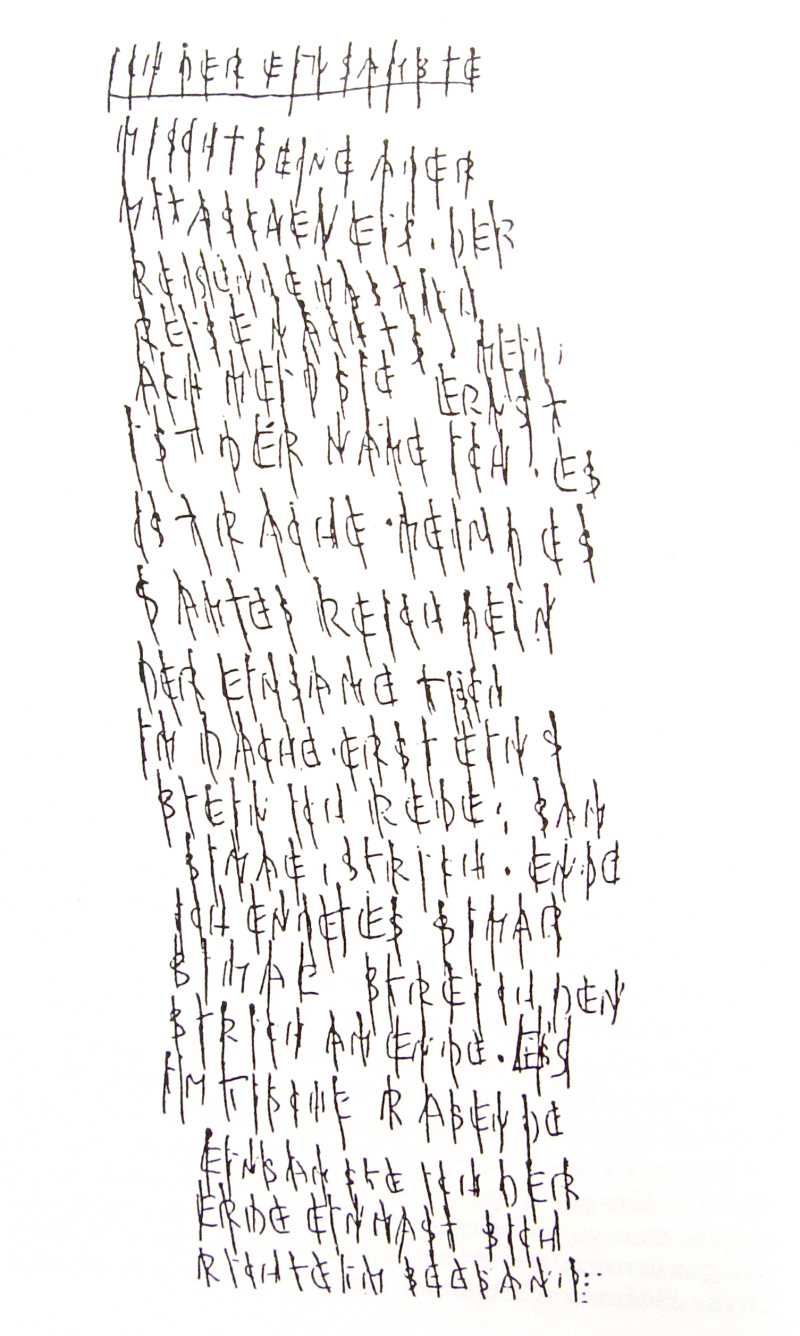 ICH DER EINSAMSTE
MISCHT SEINE ADER
MIT ASCHEN EIS. DER
REISENDE
REISE NACHTS. MEIN
ACH MEID SIE ERNST
IST DER NAME ICH. ES
IST RACHE. MEIN DES
SAMTES REICH DEIN
DER EINSAME TISCH
IM DACHE. ERST EINS
STEIN ICH REDE,
STRICH. ENDE
ICH ENDET ES
STREICH DEN
STRICH AM ENDE. ES
IM TISCHE RASENDE
EINSAMSTE ICH DER
ERDE EIN MAST SICH
RICHTE IM SEESAND